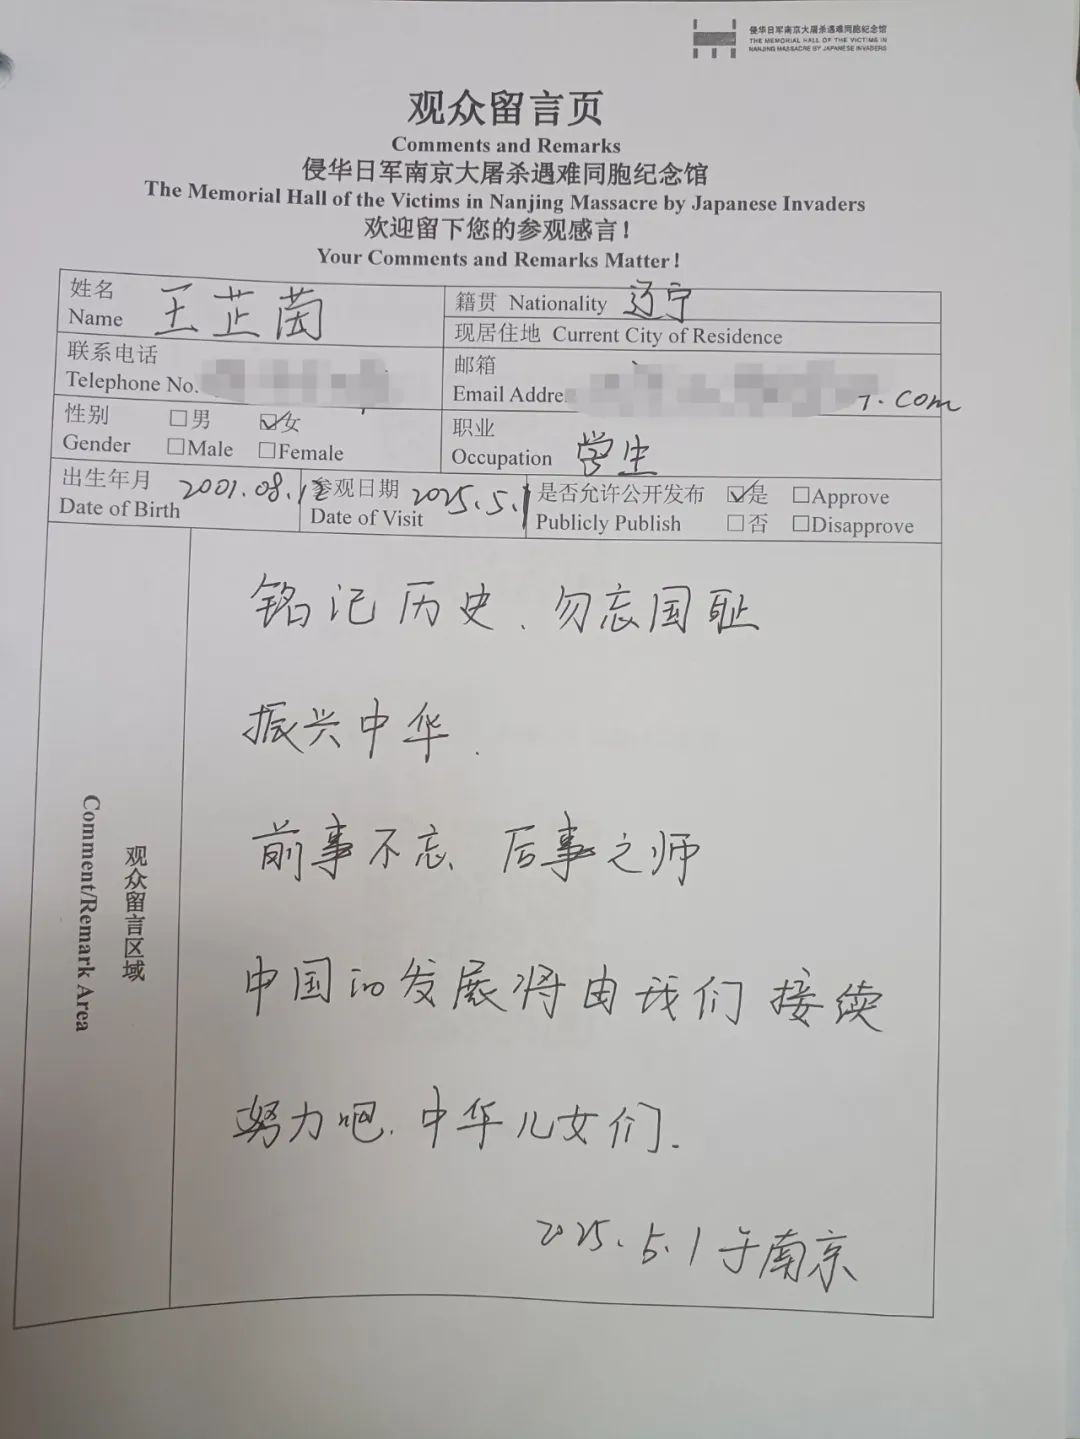 侵华日军南京大屠杀遇难同胞纪念馆
THE MEMORIAL HALL OF THE VICTIMS IN
NANJING MASSACRE BY JAPANESE INVADERS
观众留言页
Comments and Remarks
侵华日军南京大屠杀遇难同胞纪念馆
The Memorial Hall of the Victims in Nanjing Massacre by Japanese Invaders
欢迎留下您的参观感言！
Your Comments and Remarks Matter！
姓名
Name 王芷茵
籍贯 Nationality 辽宁
现居住地 Current City of Residence
联系电话
Telephone No.
邮箱
Email Addre
.com
性别 □男 ☑女
Gender □Male □Female
职业
Occupation 学生
出生年月
Date of Birth 2001.08.12
参观日期
Date of Visit 2025.5.1
是否允许公开发布 ☑是 □Approve
Publicly Publish □否 □Disapprove
观众留言区域
Comment/Remark Area
铭记历史、勿忘国耻
振兴中华.
前事不忘、后事之师
中国的发展将由我们接续
努力吧.中华儿女们.
2025.5.1于南京